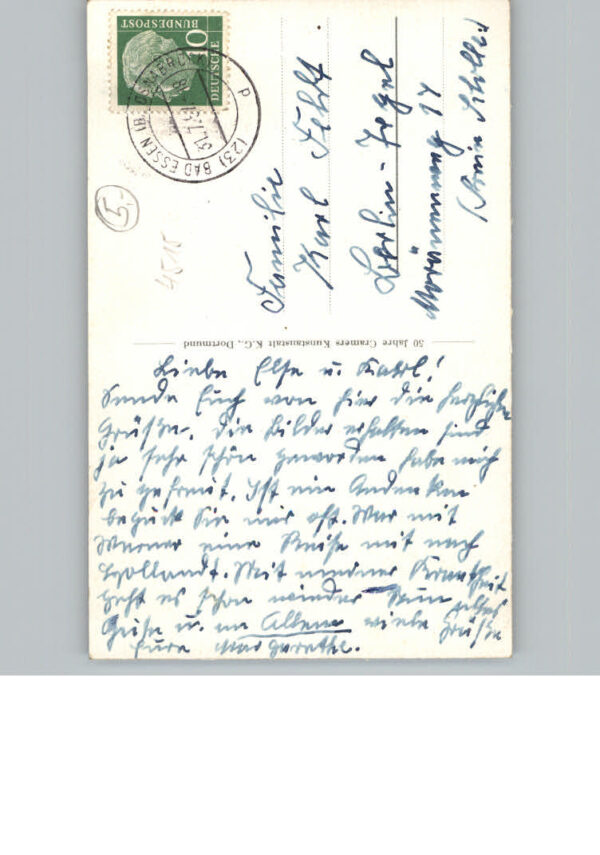 DEUTSCHE
BUNDESPOST
10
(23) BAD ESSEN (BZ. OSNABRÜCK)
31.7.57
5,-
4515
Familie
Karl Fehlt
Berlin-Tegel
Moränenweg 74
50 Jahre Cramers Kunstanstalt K.G., Dortmund
Liebe Else u. Karl!
Sende Euch von hier die herzlichen
Grüße. Die Bilder erhalten sind
ja sehr schön geworden habe mich
zu gefreut. Ist ein Andenken
beguck Sie mir oft. War mit
Werner eine Reise mit nach
Hollandt. Mit meiner Krankheit
geht es schon wieder Nun alles
Gute u. an Allen viele Grüße
Eure Margarethe.